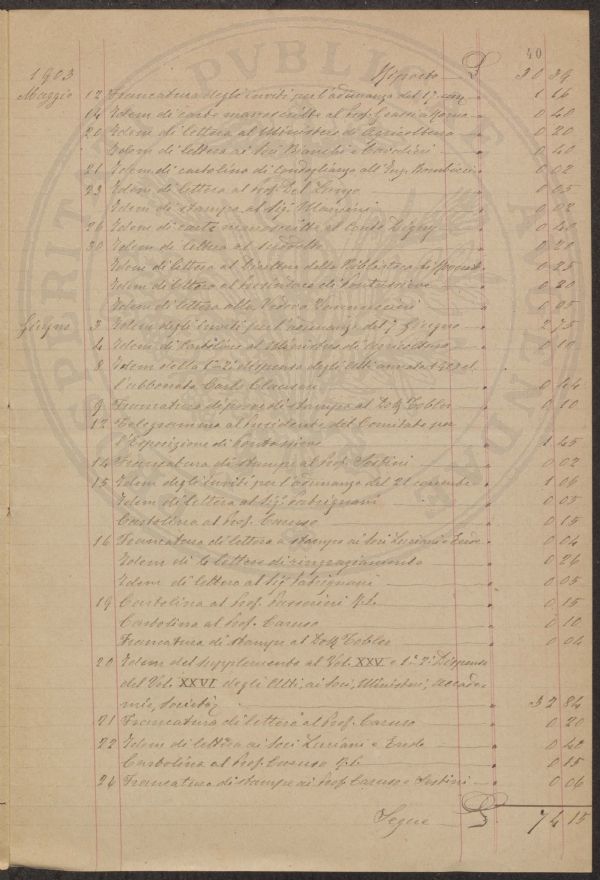 40
1903 Riporto £ 30 39
Maggio 12 Francatura degli inviti per l'adunanza del 17 " 1 16
14 Idem di carte manoscritte al Prof. a Roma " 0 40
20 Idem di lettera al Ministero di Agricoltura " 0 20
Idem di lettera ai Soci Bianchi e " 0 40
21 Idem di cartolina di all'Ing. " 0 02
23 Idem di lettera al Prof. Del Lungo " 0 05
Idem di stampe al Sig. Mancini " 0 02
26 Idem di carte manoscritte al Conte " 0 40
30 Idem di lettera al " 0 20
Idem di lettera al Direttore della Biblioteca di " 0 25
Idem di lettera al di Pontassieve " 0 20
Idem di lettera alla Vedova " 0 05
Giugno 3 Idem degli inviti per l'adunanza del 7 Giugno " 2 75
4 Idem di Cartolina al Ministero di Agricoltura " 0 10
8 Idem della 1a 2a dispensa degli Atti annata 1903 al
l'abbonato Carlo Clausen " 0 44
9 Francatura di prove di stampa al Dott. Tobler " 0 10
12 Telegramma al Presidente del Comitato per
l'Esposizione di Pontassieve " 1 45
14 Francatura di stampe al Prof. Sestini " 0 02
15 Idem degli inviti per l'adunanza del 21 corrente " 1 06
Idem di lettera al Sig. Patrignani " 0 05
Cartolina al Prof. Caruso " 0 15
16 Francatura di lettera e stampe ai Soci Luciani e " 0 04
Idem di lettere di ringraziamento " 0 26
Idem di lettera al Sig. Patrignani " 0 05
19 Cartolina al Prof. " 0 15
Cartolina al Prof. Caruso " 0 10
Francatura di stampe al Dott. Tobler " 0 04
20 Idem del supplemento al Vol. XXV. e 1a 2a Dispensa
del Vol. XXVI. degli Atti, ai Soci, Ministeri, Accade-
mie, Società " 32 84
21 Francatura di lettera al Prof. Caruso " 0 20
22 Idem di lettera ai Soci Luciani e " 0 40
Cartolina al Prof. Caruso " 0 15
26 Francatura di stampe ai Prof. Caruso e Sestini " 0 06
Segue £ 74 15
PROSPERITATI PVBLICAE AVGENDAE